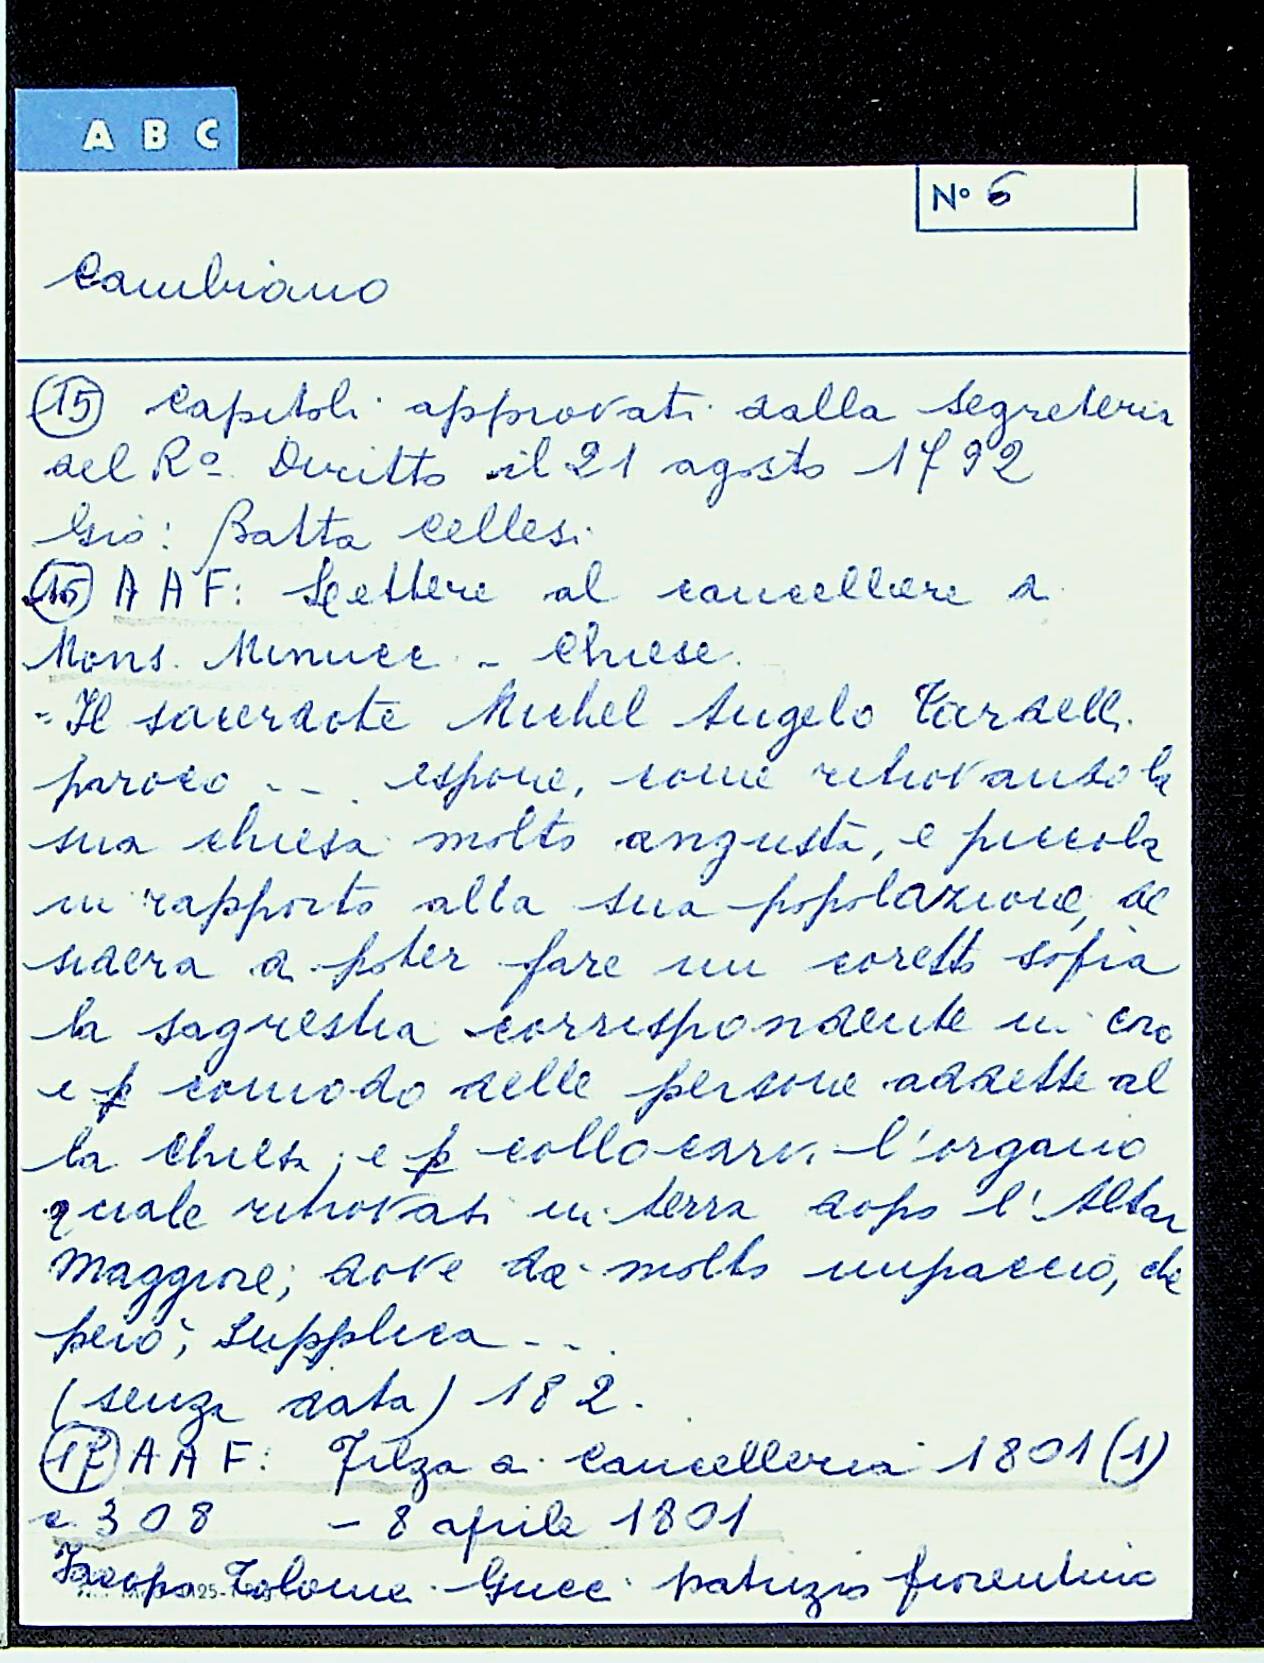 A B C
N° 6
Cambiano
(15) Capitoli approvati dalla Segreteria
del Rº Diritto il 21 agosto 1792
Gio: Batta Cellesi
(16) A A F: Lettere al cancelliere di
Mons. Minucci - Chiese.
- Il sacerdote Michel Angelo Tardelli
paroco - - . espone, come ritrovando la
sua chiesa molto angusta, e piccola
in rapporto alla sua popolazione, de
sidera di poter fare un coretto sopra
la sagrestia corrispondente in coro
e p comodo delle persone addette al
la Chiesa, e p collocarvi l'organo
quale ritrovasi in terra dopo l'Altar
Maggiore; dove da molto impaccio, che
però; supplica - - .
(senza data) 182.
(17) A A F: Filza di Cancelleria 1801 (1)
c 308 - 8 aprile 1801
Jacopo Tolomei Gucci patrizio fiorentino